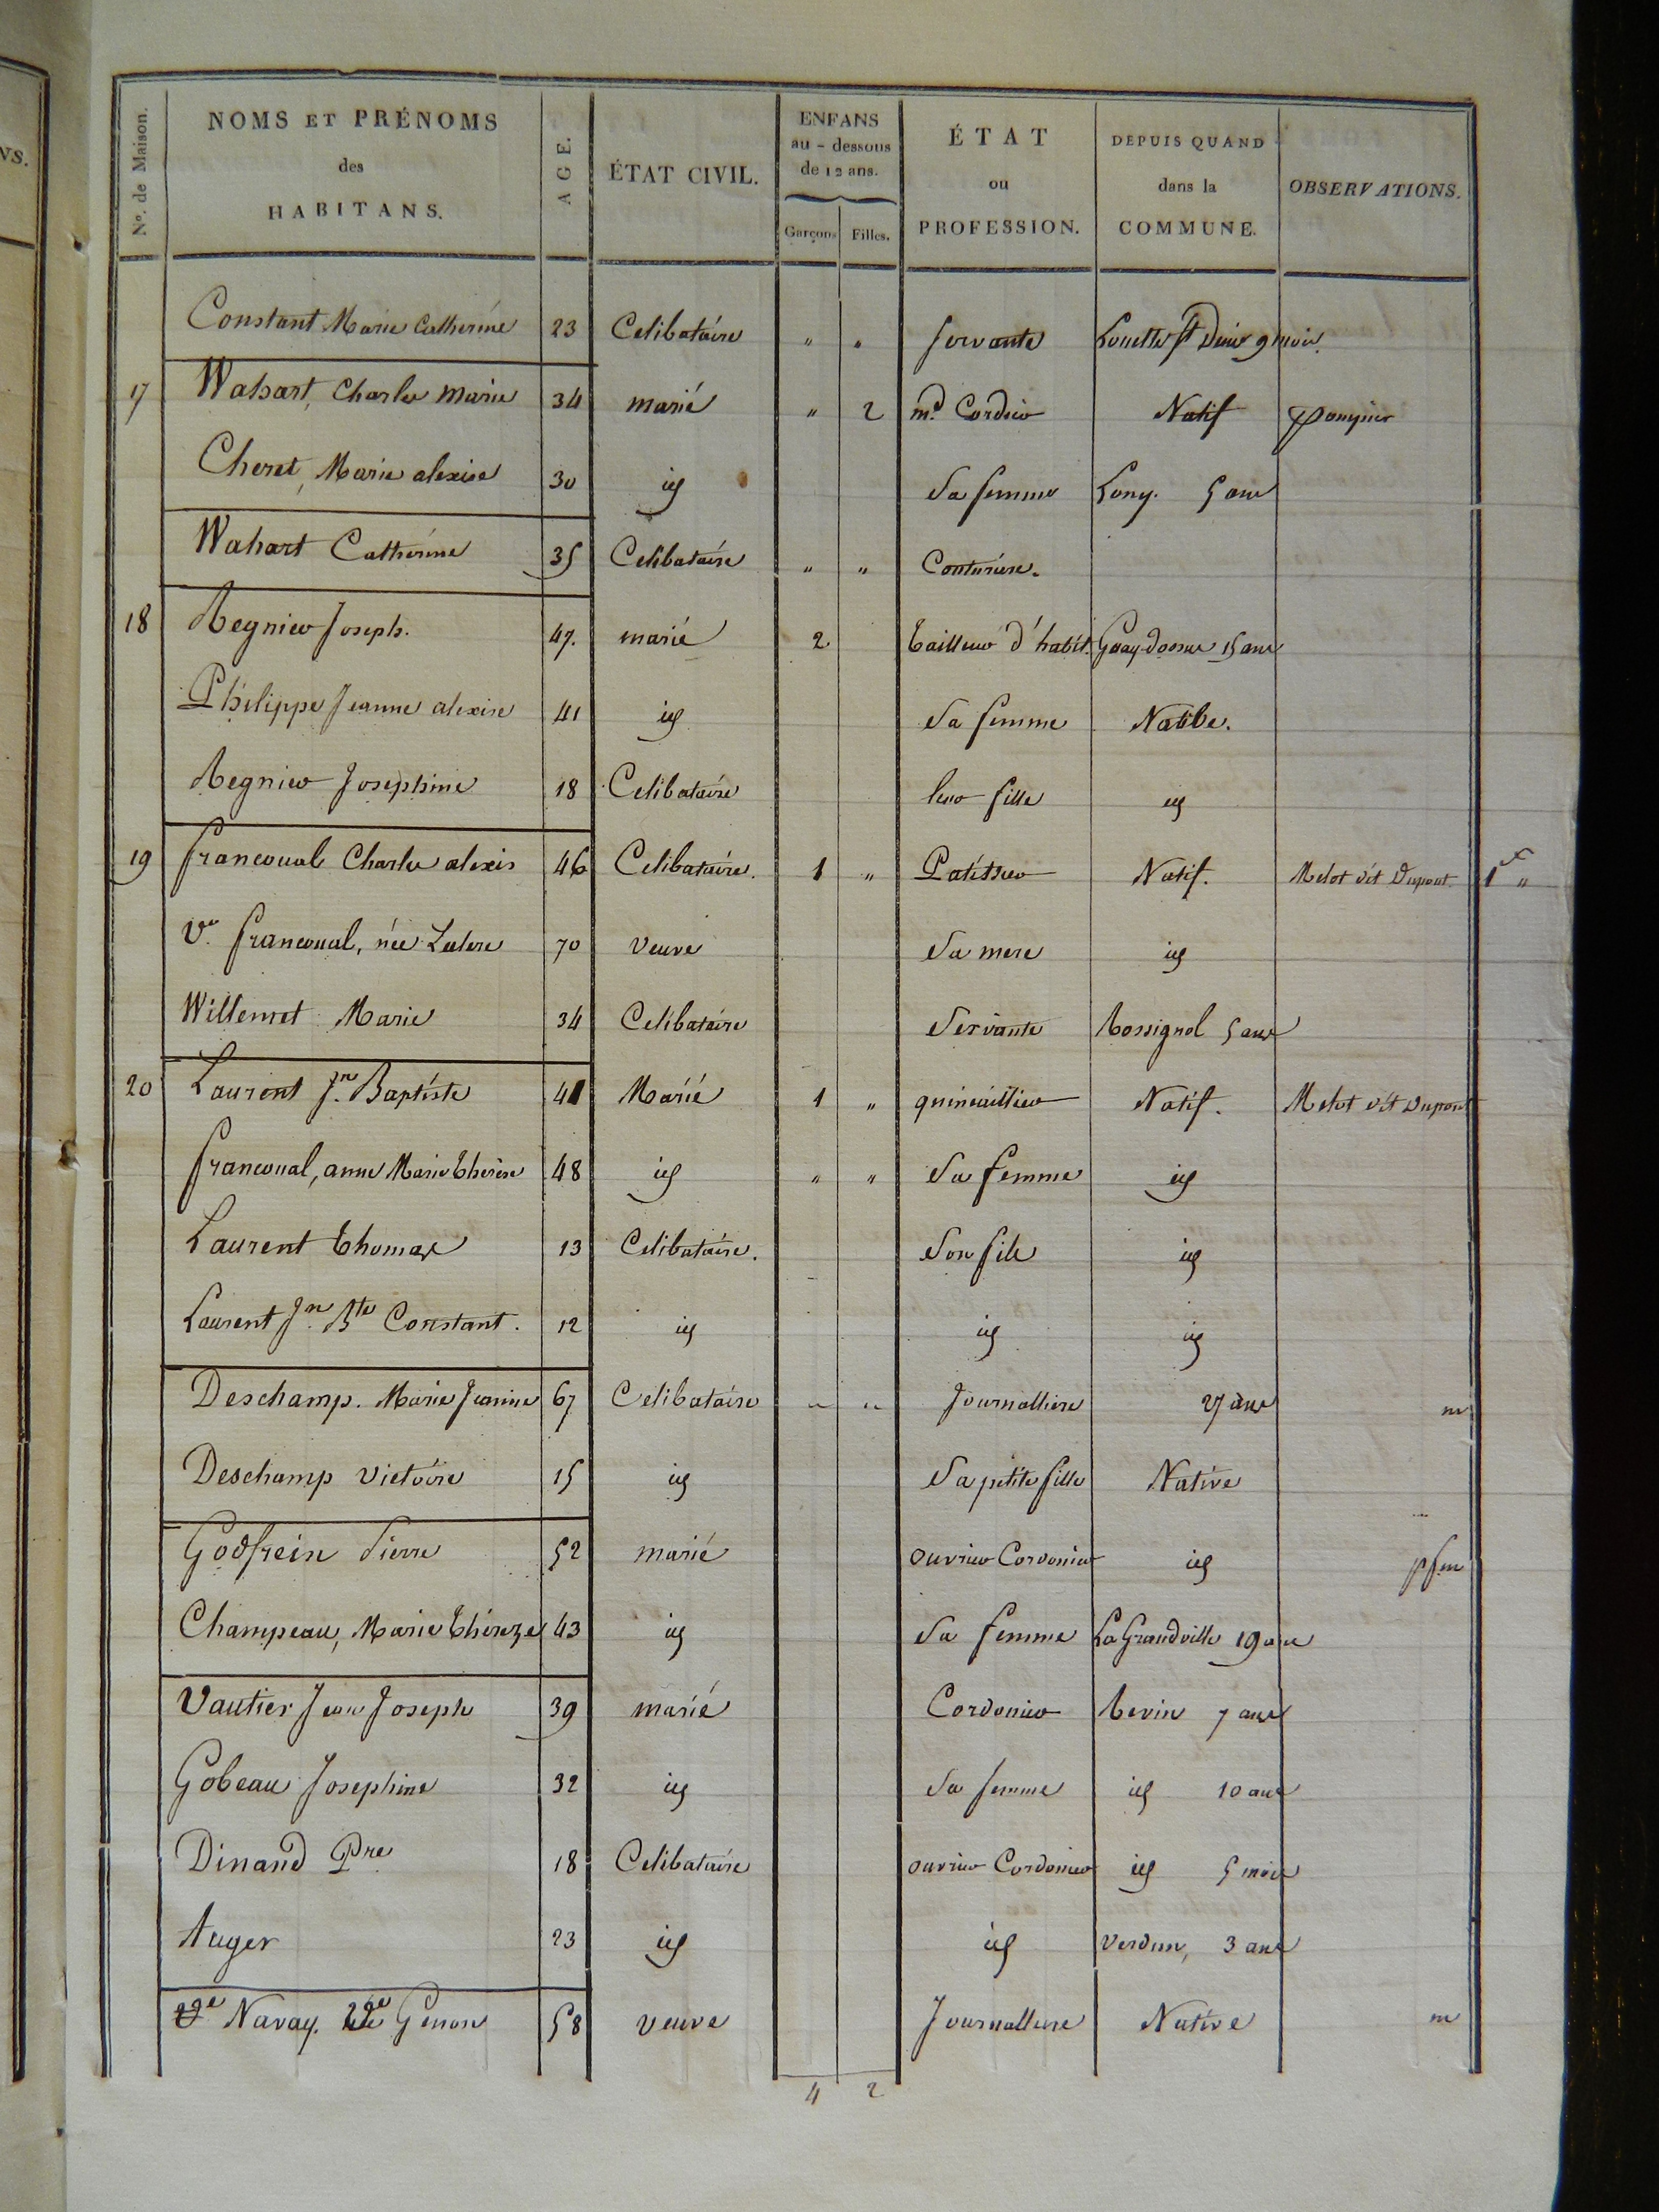 VS.
N.º de Maison.
NOMS ET PRÉNOMS
des
HABITANS.
AGE.
ÉTAT CIVIL.
ENFANS
au-dessous
de 12 ans.
Garçons Filles.
ÉTAT
ou
PROFESSION.
DEPUIS QUAND
dans la
COMMUNE.
OBSERVATIONS.
Constant Marie Catherine 23 Celibataire " " servante Louette St Denis 9 mois
17 Wahart, Charles Marie 34 marié " 2 md. Cordier Natif pompier
Cheret, Marie alexise 30 id Sa femme Lony. 5 ans
Wahart Catherine 35 Celibataire " " Couturiere.
18 Regnier Joseph. 47. marié 2 tailleur d'habit. 15 ans
Philippe Jeanne alexise 41 id Sa femme Native.
Regnier Josephine 18 Celibataire leur fille id
19 francoual Charles alexis 46 Celibataire. 1 " Patissier Natif. Melot dit Dupont 1 f "
Ve. francoual, née 70 veuve Sa mere id
Willemet Marie 34 Celibataire Servante Rossignol 5 ans
20 Laurent Jn. Baptiste 41 Marié 1 " quincaillier Natif. Melot dit Dupont
francoual, anne Marie Therese 48 id " " Sa femme id
Laurent Thomas 13 Celibataire. Son fils id
Laurent Jn. Bte Constant. 12 id id id
Deschamp. Marie Jeanne 67 Celibataire " " Journalliere 27 ans m
Deschamp victoire 15 id Sa petite fille Native
Godfrein Pierre 52 marié ouvrier Cordonier id
Champeau, Marie Thereze 43 id Sa femme La Grandville 19 ans
Vautier Jean Joseph 39 marié Cordonier Revin 7 ans
Gobeau Josephine 32 id Sa femme id 10 ans
Dinand Pre 18 Celibataire ouvrier Cordonier id 5 mois
Auger 23 id id verdun, 3 ans
Navay. Genon 58 veuve Journalliere Native m
4 2